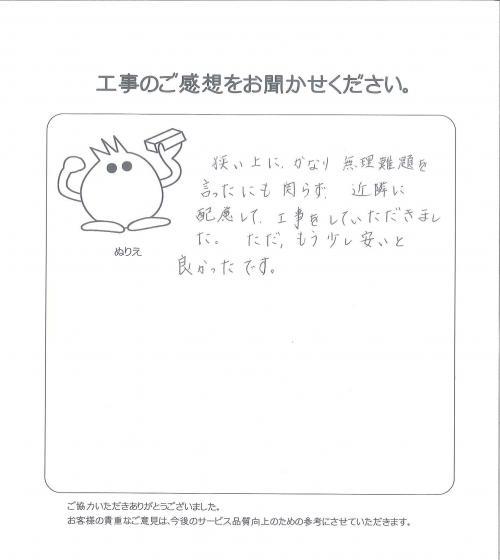 工事のご感想をお聞かせください。
狭い上に、かなり無理難題を
言ったにも関らず、近隣に
配慮して、工事をしていただきまし
た。ただ、もう少し安いと
良かったです。
ぬりえ
ご協力いただきありがとうございました。
お客様の貴重なご意見は、今後のサービス品質向上のための参考にさせていただきます。